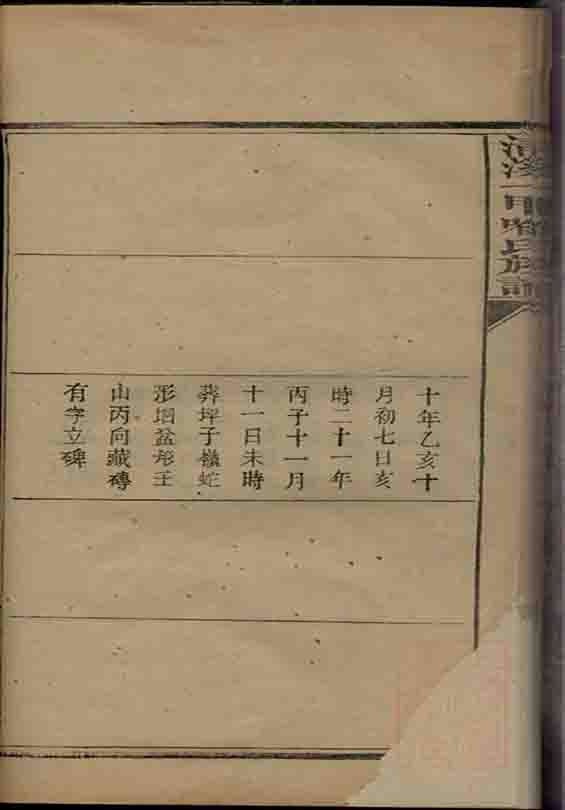 十年乙亥十
月初七日亥
時二十一年
丙子十一月
十一日未時
葬坪子嶺蛇
形堌盆形壬
山丙向藏磚
有字立碑